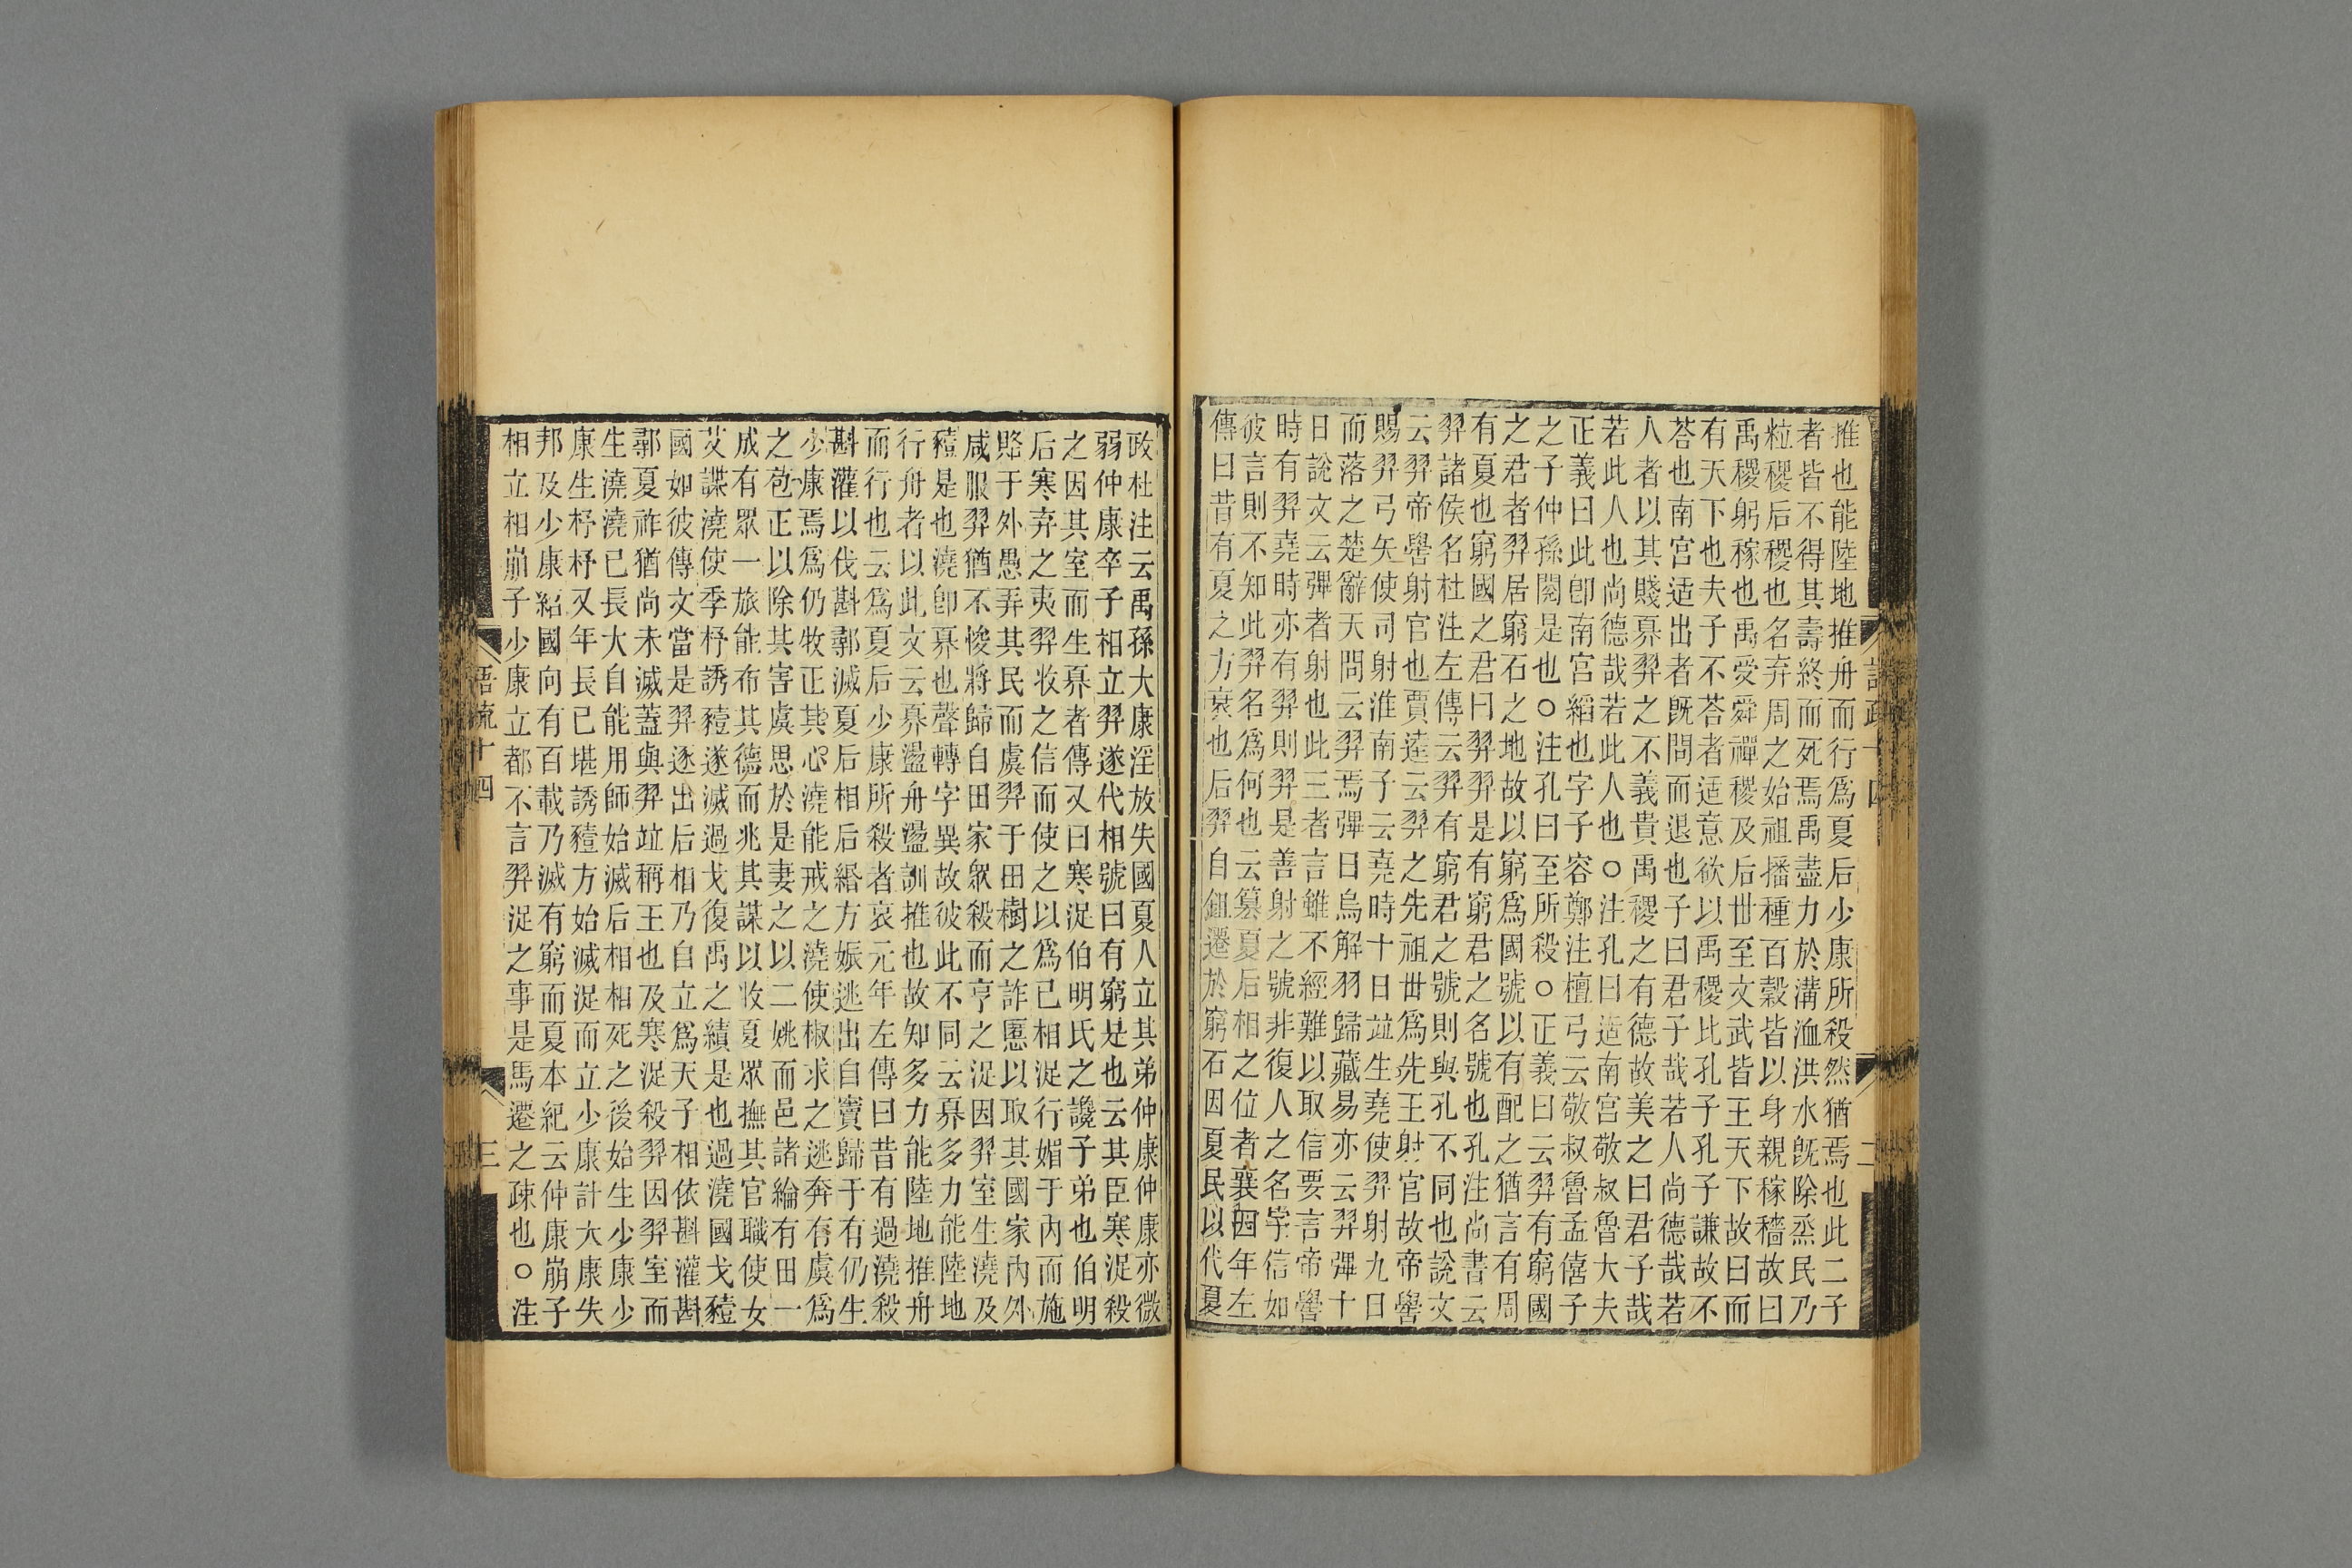 推也能陸地推舟而行爲夏后少康所殺然猶焉也此二子
者皆不得其壽終而死焉禹盡力於溝洫洪水既除烝民乃
粒稷后稷也名弃周之始祖播種百穀皆以身親稼穡故曰
禹稷躬稼也禹受舜禪稷及后世至文武皆王天下故曰而
有天下也夫子不荅者适意欲以禹稷比孔子孔子謙故不
荅也南宮适出者既問而退也子曰君子哉若人尚德哉若
人者以其賤奡羿之不義貴禹稷之有德故美之曰君子哉
若此人也尚德哉若此人也○注孔曰适南宮敬叔魯大夫
正義曰此卽南宮縚也字子容鄭注檀弓云敬叔魯孟僖子
之子仲孫閱是也○注孔曰至所殺○正義曰云羿有窮國
之君者羿居窮石之地故以窮爲國號以有配之猶言有周
有夏也窮國之君曰羿羿是有窮君之名號也孔注尚書云
羿諸侯名杜注左傳云羿有窮君之號則與孔不同也說文
云羿帝嚳射官也賈逵云羿之先祖世爲先王射官故帝嚳
賜羿弓矢使司射淮南子云堯時十日竝生堯使羿射九日
而落之楚辭天問云羿焉彈日烏解羽歸藏易亦云羿彈十
日說文云彈者射也此三者言雖不經難以取信要言帝嚳
時有羿堯時亦有羿則羿是善射之號非復人之名字信如
彼言則不知此羿名爲何也云篡夏后相之位者襄四年左
傳曰昔有夏之方衰也后羿自鉏遷於窮石因夏民以代夏
政杜注云禹孫大康淫放失國夏人立其弟仲康仲康亦微
弱仲康卒子相立羿遂代相號曰有窮是也云其臣寒浞殺
之因其室而生奡者傳又曰寒浞伯明氏之讒子弟也伯明
后寒弃之夷羿收之信而使之以爲已相浞行媚于內而施
賂于外愚弄其民而虞羿于田樹之詐慝以取其國家內外
咸服羿猶不悛將歸自田家眾殺而亨之浞因羿室生澆及
豷是也澆卽奡也聲轉字異故彼此不同云奡多力能陸地
行舟者以此文云奡盪舟盪訓推也故知多力能陸地推舟
而行也云爲夏后少康所殺者哀元年左傳曰昔有過澆殺
斟灌以伐斟鄩滅夏后相后緡方娠逃出自竇歸于有仍生
少康焉爲仍牧正惎澆能戒之澆使椒求之逃奔有虞爲
之庖正以除其害虞思於是妻之以二姚而邑諸綸有田一
成有眾一旅能布其德而兆其謀以收夏眾撫其官職使女
艾諜澆使季杼誘豷遂滅過戈復禹之績是也過澆國戈豷
國如彼傳文當是羿逐出后相乃自立爲天子相依斟灌斟
鄩夏祚猶尚未滅蓋與羿竝稱王也及寒浞殺羿因羿室而
生澆澆已長大自能用師始滅后相相死之後始生少康少
康生杼杼又年長已堪誘豷方始滅浞而立少康計大康失
邦及少康紹國向有百載乃滅有窮而夏本紀云仲康崩子
相立相崩子少康立都不言羿浞之事是馬遷之疎也○注
語疏十四
三